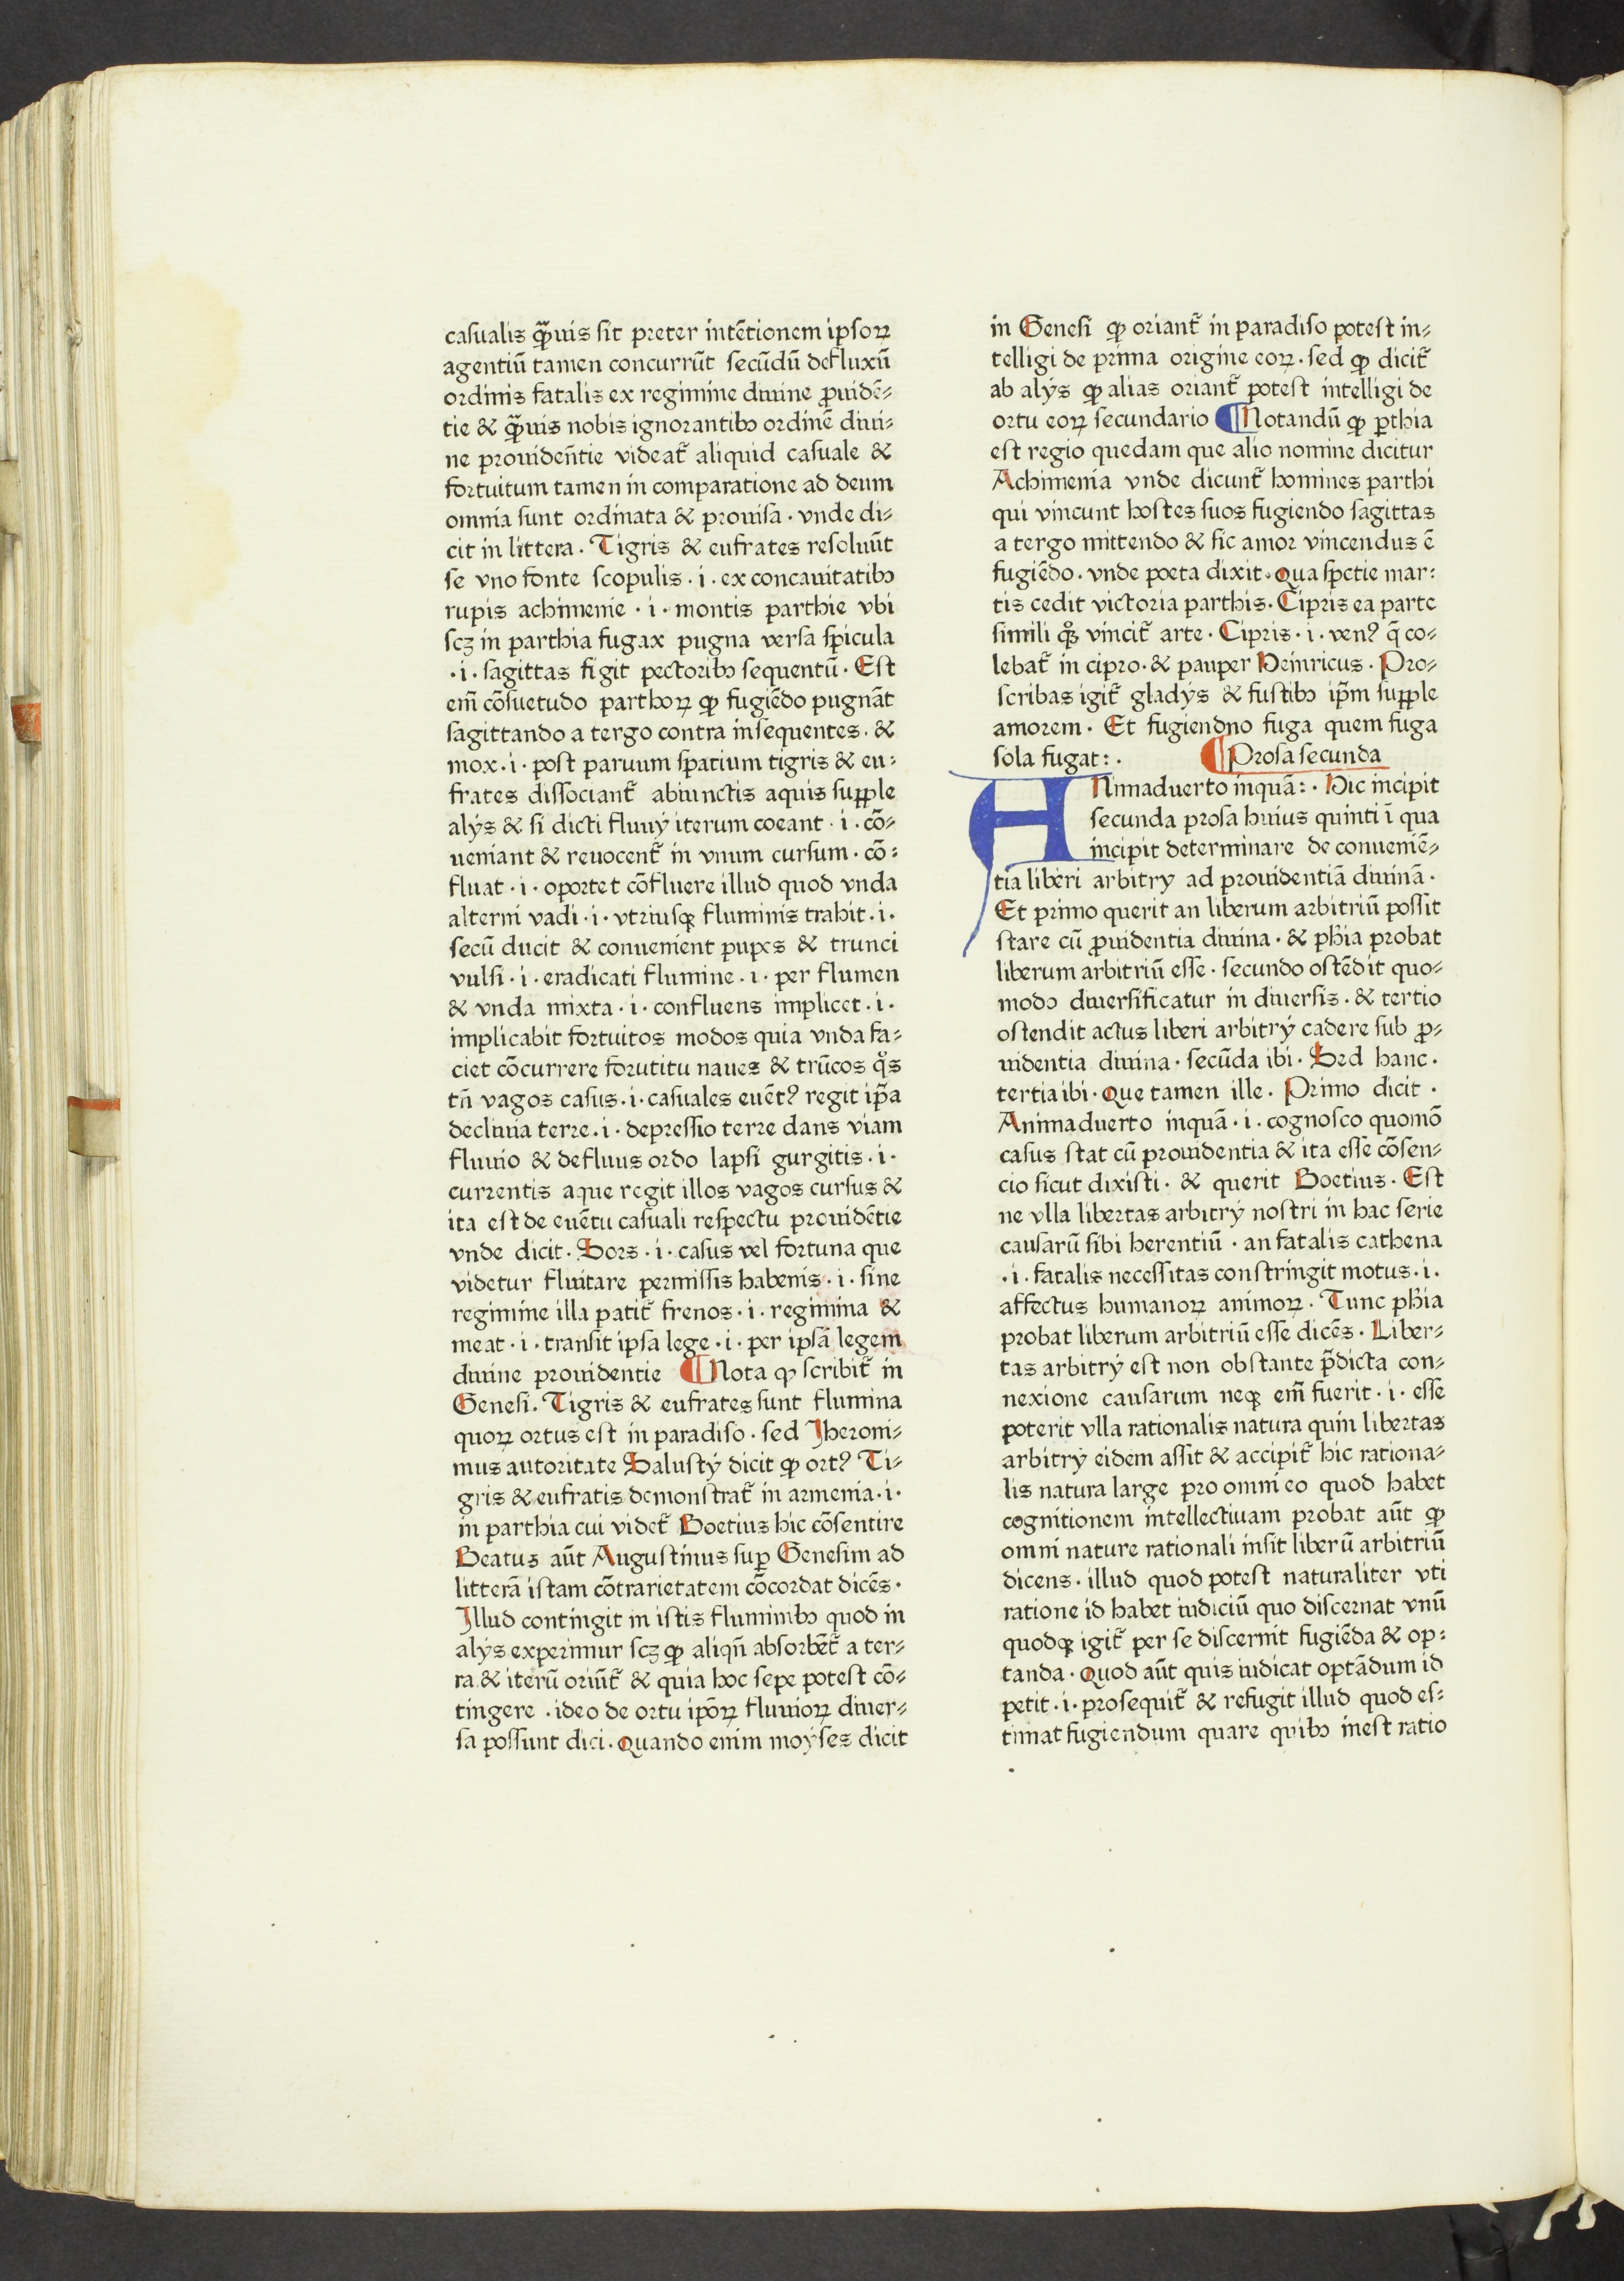 casualis q̃uis sit preter intẽtionem ipsoꝝ
agentiũ tamen concurrũt secũdũ defluxũ
ordinis fatalis ex regimine diuine ꝓuidẽ-
tie & q̃uis nobis ignorantibꝫ ordinẽ diui-
ne prouidẽntie videat̃ aliquid casuale &
fortuitum tamen in comparatione ad deum
omnia sunt ordinata & prouisa · vnde di-
cit in littera · Tigris & eufrates resoluũt
se vno fonte scopulis · i · ex concauitatibꝫ
rupis achimenie · i · montis parthie vbi
scꝫ in parthia fugax pugna versa spicula
· i · sagittas figit pectoribꝫ sequentũ · Est
em̃ cõsuetudo parthoꝝ ꝙ fugiẽdo pugnãt
sagittando a tergo contra insequentes · &
mox · i · post paruum spatium tigris & eu-
frates dissociant̃ abiunctis aquis suꝑple
alijs & si dicti fluuij iterum coeant · i · cõ-
ueniant & reuocent̃ in vnum cursum · cõ-
fluat · i · oportet cõfluere illud quod vnda
alterni vadi · i · vtriusqꝫ fluminis trahit · i ·
secũ ducit & conuenient pupes & trunci
vulsi · i · eradicati flumine · i · per flumen
& vnda mixta · i · confluens implicet · i ·
implicabit fortuitos modos quia vnda fa-
ciet cõcurrere forutitu naues & trũcos qͦs
tñ vagos casus · i · casuales euẽtꝰ regit ip̃a
decliuia terre · i · depressio terre dans viam
fluuio & defluus ordo lapsi gurgitis · i ·
currentis aque regit illos vagos cursus &
ita est de euẽtu casuali respectu prouidẽtie
vnde dicit · Sors · i · casus vel fortuna que
videtur fluitare permissis habenis · i · sine
regimine illa patit̃ frenos · i · regimina &
meat · i · transit ipsa lege · i · per ipsã legem
diuine prouidentie ¶ Nota ꝙ scribit̃ in
Genesi · Tigris & eufrates sunt flumina
quoꝝ ortus est in paradiso · sed Jheroni-
mus autoritate Salustij dicit ꝙ ortꝰ Ti-
gris & eufratis demonstrat̃ in armenia · i ·
in parthia cui videt̃ Boetius hic cõsentire
Beatus aũt Augustinus suꝑ Genesim ad
litterã istam cõtrarietatem cõcordat dicẽs ·
Jllud contingit in istis fluminibꝫ quod in
alijs experimur scꝫ ꝙ aliqñ absorbẽt̃ a ter-
ra & iterũ oriũt̃ & quia hoc sepe potest cõ-
tingere · ideo de ortu ipõꝝ fluuioꝝ diuer-
sa possunt dici · Quando enim moyses dicit
in Genesi ꝙ oriant̃ in paradiso potest in-
telligi de prima origine eoꝝ · sed ꝙ dicit̃
ab alijs ꝙ alias oriant̃ potest intelligi de
ortu eoꝝ secundario ¶ Notandũ ꝙ ꝑthia
est regio quedam que alio nomine dicitur
Achimenia vnde dicunt̃ homines parthi
qui vincunt hostes suos fugiendo sagittas
a tergo mittendo & sic amor vincendus ẽ
fugiẽdo · vnde poeta dixit · Qua spctie mar-
tis cedit victoria parthis · Cipris ea parte
simili qͦꝫ vincit̃ arte · Cipris · i · venꝰ q̃ co-
lebat̃ in cipro · & pauper Heinricus · Pro-
scribas igit̃ gladijs & fustibꝫ ip̃m suꝑple
amorem · Et fugiendno fuga quem fuga
sola fugat: · ¶ Prosa secunda
ANimaduerto inquã: · Hic incipit
secunda prosa huius quinti ĩ qua
incipit determinare de conueniẽ-
tia liberi arbitrij ad prouidentiã diuinã ·
Et primo querit an liberum arbitriũ possit
stare cũ ꝓuidentia diuina · & ph̃ia probat
liberum arbitriũ esse · secundo ostẽdit quo-
modo diuersificatur in diuersis · & tertio
ostendit actus liberi arbitrij cadere sub ꝓ-
uidentia diuina · secũda ibi · Sed hanc ·
tertia ibi · Que tamen ille · Primo dicit ·
Animaduerto inquã · i · cognosco quomõ
casus stat cũ prouidentia & ita esse cõsen-
cio sicut dixisti · & querit Boetius · Est
ne vlla libertas arbitrij nostri in hac serie
causarũ sibi herentiũ · an fatalis cathena
· i · fatalis necessitas constringit motus · i ·
affectus humanoꝝ animoꝝ · Tunc ph̃ia
probat liberum arbitriũ esse dicẽs · Liber-
tas arbitrij est non obstante p̃dicta con-
nexione causarum neqꝫ em̃ fuerit · i · esse
poterit vlla rationalis natura quin libertas
arbitrij eidem assit & accipit̃ hic rationa-
lis natura large pro omni eo quod habet
cognitionem intellectiuam probat aũt ꝙ
omni nature rationali insit liberũ arbitriũ
dicens · illud quod potest naturaliter vti
ratione id habet iudiciũ quo discernat vnũ
quodqꝫ igit̃ per se discernit fugiẽda & op-
tanda · Quod aũt quis iudicat optãdum id
petit · i · prosequit̃ & refugit illud quod es-
timat fugiendum quare quibꝫ inest ratio